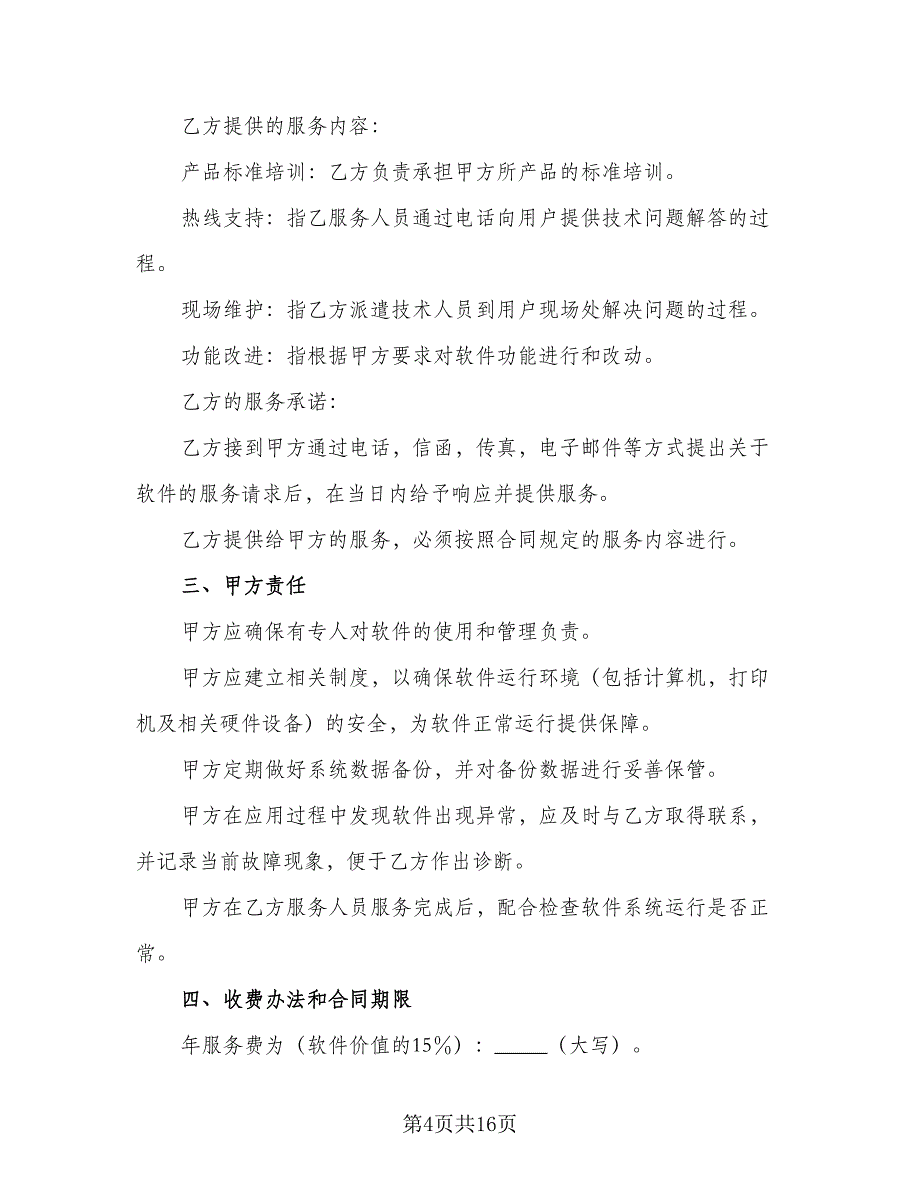 乙方提供的服务内容：
产品标准培训：乙方负责承担甲方所产品的标准培训。
热线支持：指乙服务人员通过电话向用户提供技术问题解答的过
程。
现场维护：指乙方派遣技术人员到用户现场处解决问题的过程。
功能改进：指根据甲方要求对软件功能进行和改动。
乙方的服务承诺：
乙方接到甲方通过电话，信函，传真，电子邮件等方式提出关于
软件的服务请求后，在当日内给予响应并提供服务。
乙方提供给甲方的服务，必须按照合同规定的服务内容进行。
三、甲方责任
甲方应确保有专人对软件的使用和管理负责。
甲方应建立相关制度，以确保软件运行环境（包括计算机，打印
机及相关硬件设备）的安全，为软件正常运行提供保障。
甲方定期做好系统数据备份，并对备份数据进行妥善保管。
甲方在应用过程中发现软件出现异常，应及时与乙方取得联系，
并记录当前故障现象，便于乙方作出诊断。
甲方在乙方服务人员服务完成后，配合检查软件系统运行是否正
常。
四、收费办法和合同期限
年服务费为（软件价值的15％）：_____（大写）。
第4页共16页